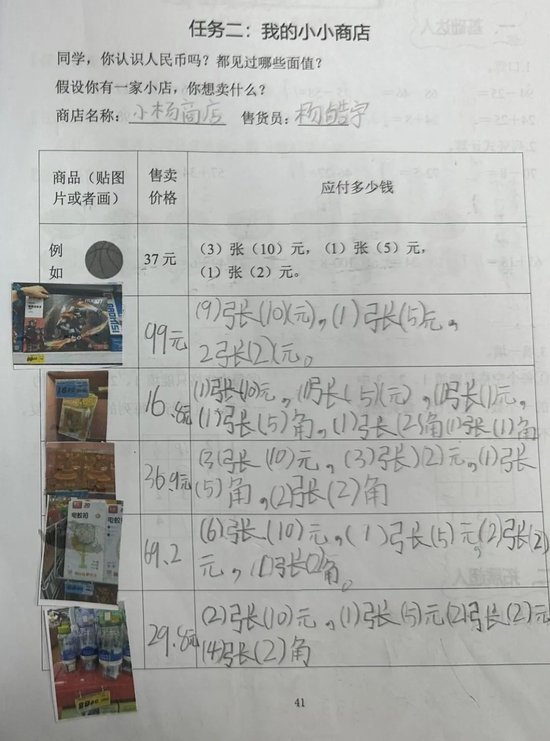 任务二：我的小小商店
同学，你认识人民币吗？都见过哪些面值？
假设你有一家小店，你想卖什么？
商店名称：小杨商店 售货员：杨皓宇
商品（贴图片或者画） 售卖价格 应付多少钱
例如 37元 （3）张（10）元，（1）张（5）元，
（1）张（2）元。
99元 (9)张(10)(元)，(1)张(5)元，
2张(2)(元。
16.8元 (1)张(10)元，(1)张(5)(元)，(1)张(1)元，
(1)张(5)角，(1)张(2)角(1)张(1)角
36.9元 (3)张(10)元，(3)张(2)元，(1)张
(5)角，(2)张(2)角
电蚊拍
69.2 (6)张(10)元，(1)张(5)元，(2)张(2)
元，(1)张(2)角。
29.8元 (2)张(10)元，(1)张(5)元(2)张(2)元
(4)张(2)角
41